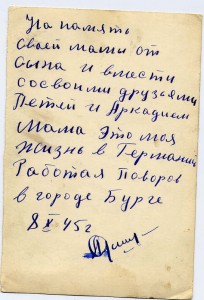 На память
своей мамы от
сына и вмести
сосвоими друзьями
Петей и Аркадием
Мама Это моя
жизнь в Германии
Работая Поворов
в городе Бурге
8 X 45 г